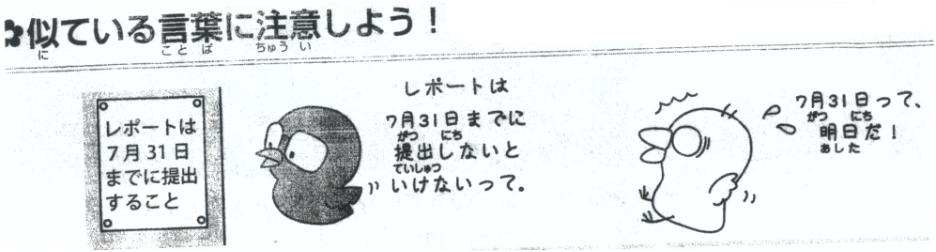 似ている言葉に注意しよう！
に
ことば
ちゅうい
レポートは
7月31日
までに提出
すること
レポートは
7月31日までに
がつ にち
提出しないと
ていしゅつ
いけないって。
7月31日って、
がつ にち
明日だ！
あした